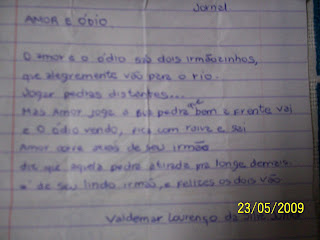 Jornal
AMOR E ÓDIO
O amor e o ódio são dois irmãozinhos,
que alegremente vão para o rio.
Jogar pedras distantes...
Mas Amor joga a sua pedra que bem a frente vai
e O ódio vendo, fica com raiva e sai
Amor corre atrás de seu irmão
diz que aquela pedra atirada pra longe demais
é de seu lindo irmão, e felizes os dois vão
Valdemar Lourenço da
23/05/2009